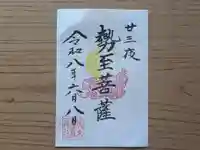 廿三夜
勢至菩薩
令和八年六月八日